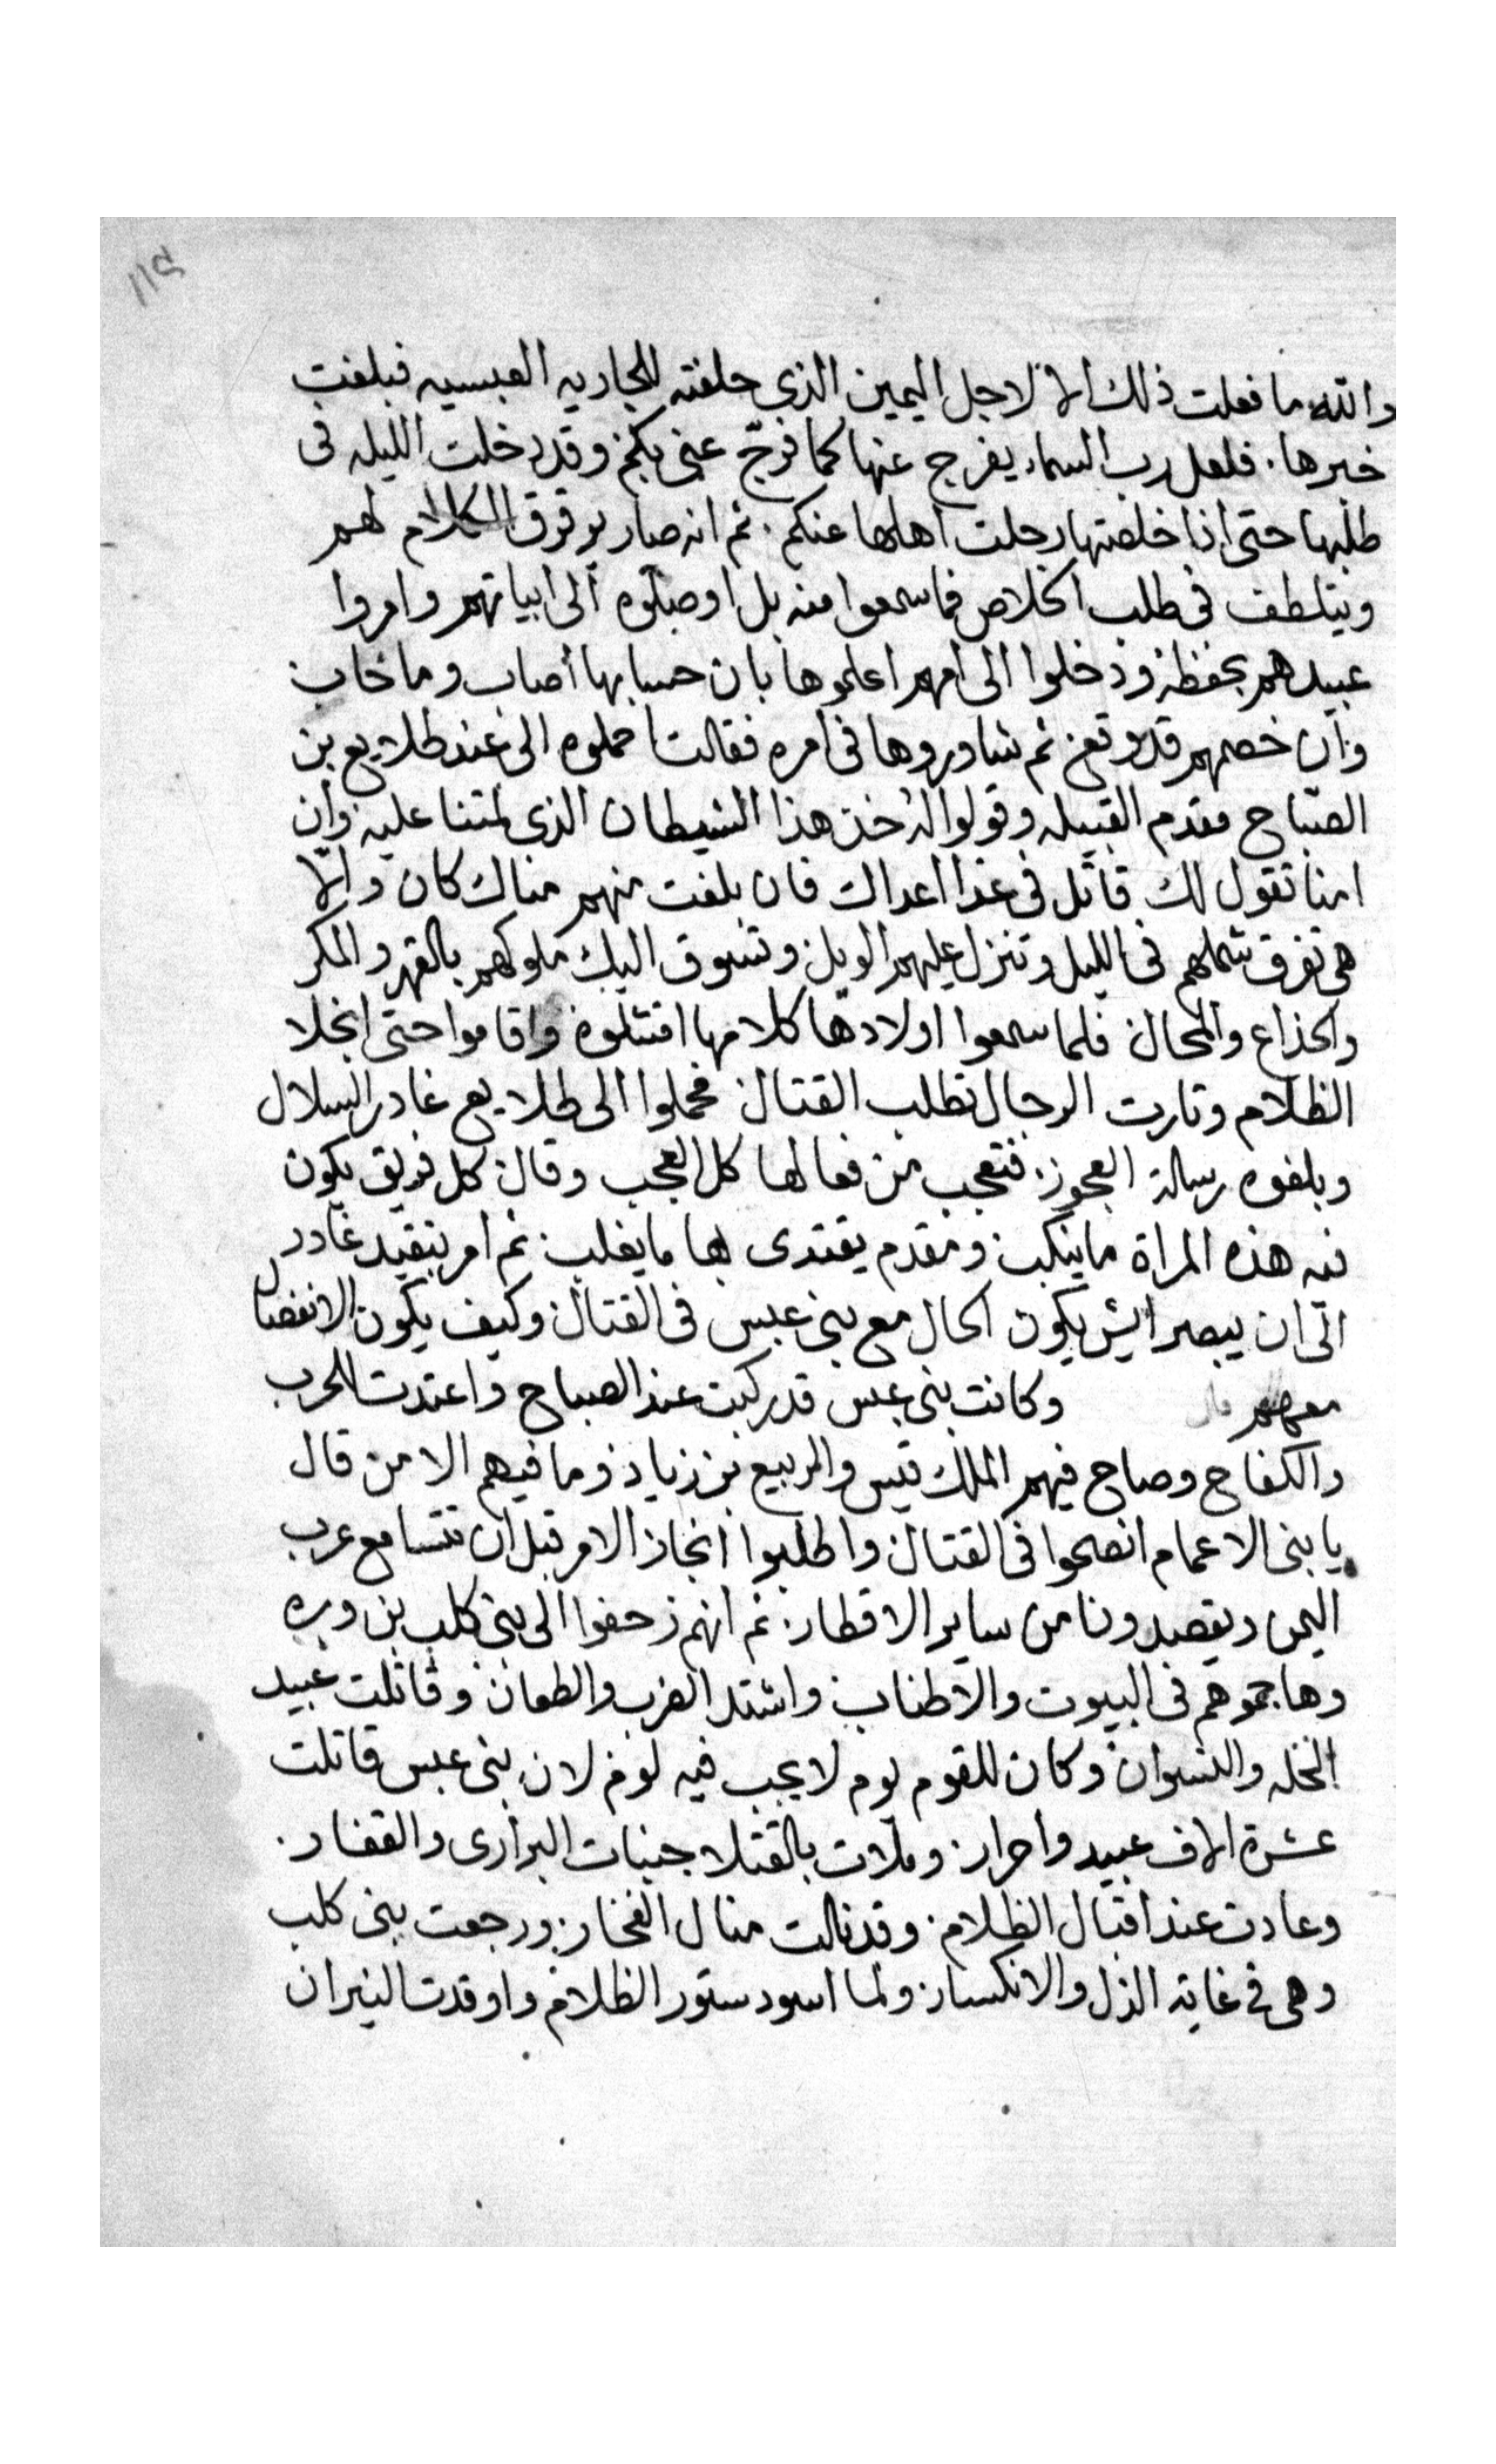 والله ما فعلت ذلك الا لاجل اليمين الذى حلفته للجاريه العبسيه فبلغت
خبرها. فلعل رب السماء يفرج عنها كما فرّج عنى بكم وقد دخلت الليله فى
طلبها حتى اذا خلصتها رحلت اهلها عنكم. ثم انه صار يوقوق الكلام لهم
ويتلطف فى طلب الخلاص فما سمعوا منه بل اوصلوه الى ابياتهم وامروا
عبيدهم بحفظه ودخلوا الى امهم اعلموها بان حسابها اصاب وما خاب
وان خصمهم قد وقع ثم شاوروها فى امره فقالت احملوه الى عند طلايع بن
الصباح مقدم القبيله وقولوا له خذ هذا الشيطان الذى لمتنا عليه وان
امنا تقول لك قاتل فى غدا اعداك فان بلغت منهم مناك كان والّا
هى تفرق شملهم فى الليل وتنزل عليهم الويل وتسوق اليك ملوكهم بالقهر والمكر
والخداع والمحال فلما سمعوا اولادها كلامها امتثلوه واقاموا حتى انجلا
الظلام وثارت الرجال تطلب القتال فحملوا الى طلايع غادر السلال
وبلغوه رسالة العجوز. فتعجب من فعالها كل العجب وقال كل فريق يكون
فيه هذه المراة ما ينكب ومقدم يقتدى بها ما يغلب ثم امر بتقيد غادر
الى ان يبصر ايش يكون الحال مع بنى عبس فى القتال وكيف يكون الانفصال
معهم قال وكانت بنى عبس قد ركبت عند الصباح واعتدت للحرب
والكفاح وصاح فيهم الملك قيس والربيع بن زياد وما فيهم الا من قال
يا بنى الاعمام انصحوا فى القتال واطلبوا انجاز الامر قبل ان تتسامع عرب
اليمن ويقصدونا من ساير الاقطار. ثم انهم زحفوا الى بنى كلب بن وبره
وهاجموهم فى البيوت والاطناب واشتد الضرب والطعان وقاتلت عبيد
الحله والنسوان وكان للقوم يوم لا يجب فيه لوم لان بنى عبس قاتلت
عشرة الاف عبيد واحرار. وملات بالقتلا جنبات البرارى والقفار.
وعادت عند اقبال الظلام. وقد نالت منال الفخار. ورجعت بنى كلب
وهى فى غاية الذل والانكسار. ولما اسود ستور الظلام واوقدت النيران